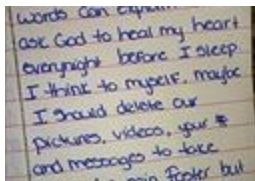 words can explain
ask God to heal my heart
everynight before I sleep
I think to myself, maybe
I should delete our
pictures, videos, your
and messages to take
pain faster but